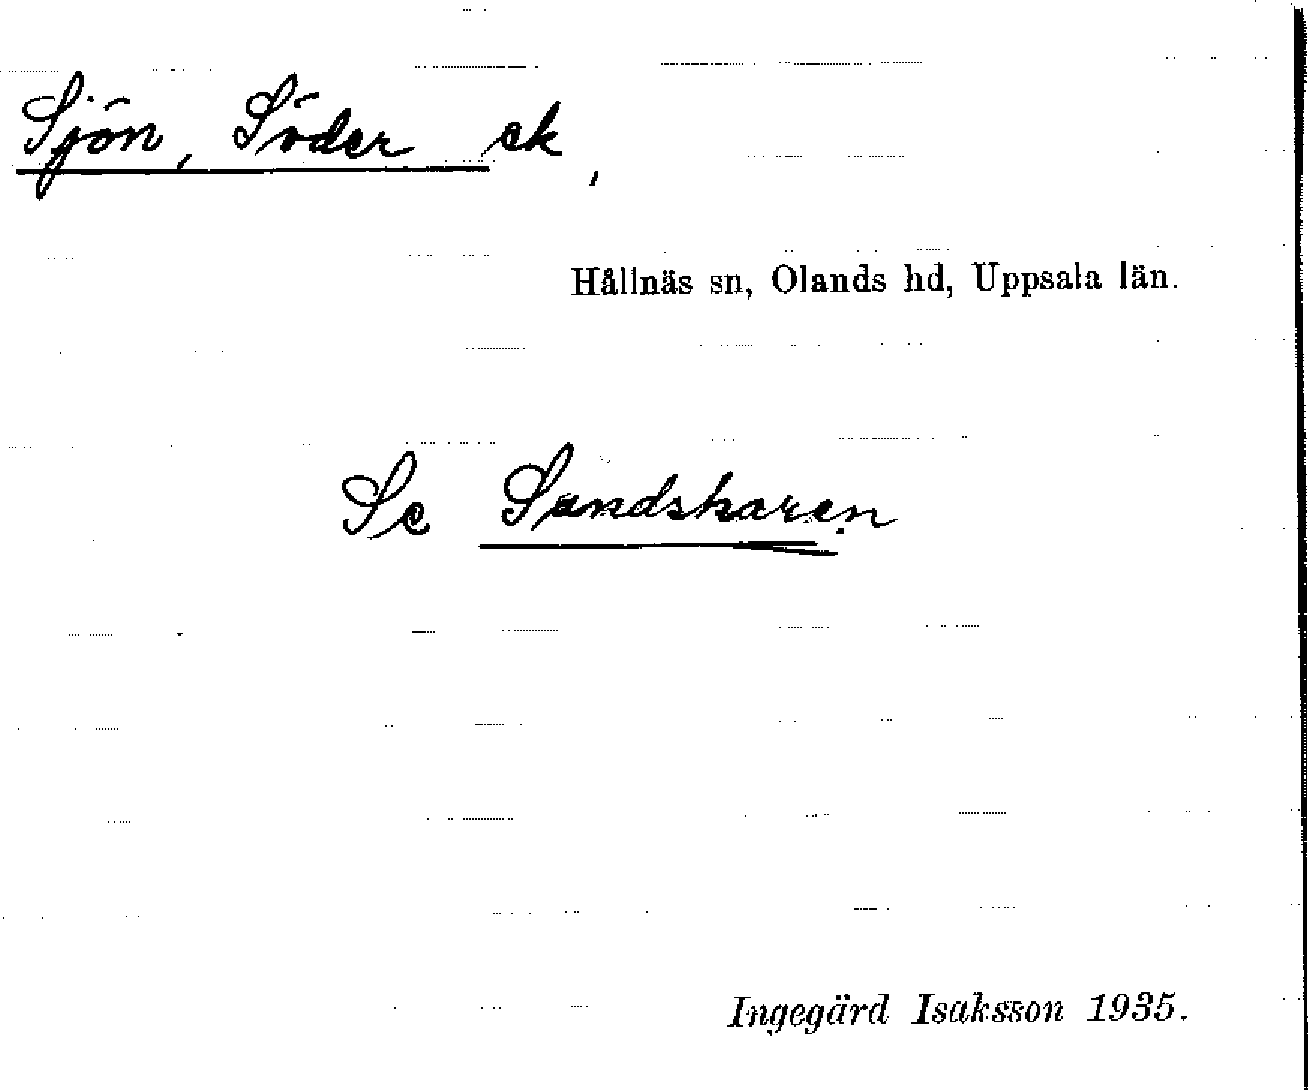 Sjön, Söder ek,
Hållnäs sn, Olands hd, Uppsala län.
Se Sandskaren
Ingegärd Isaksson 1935.